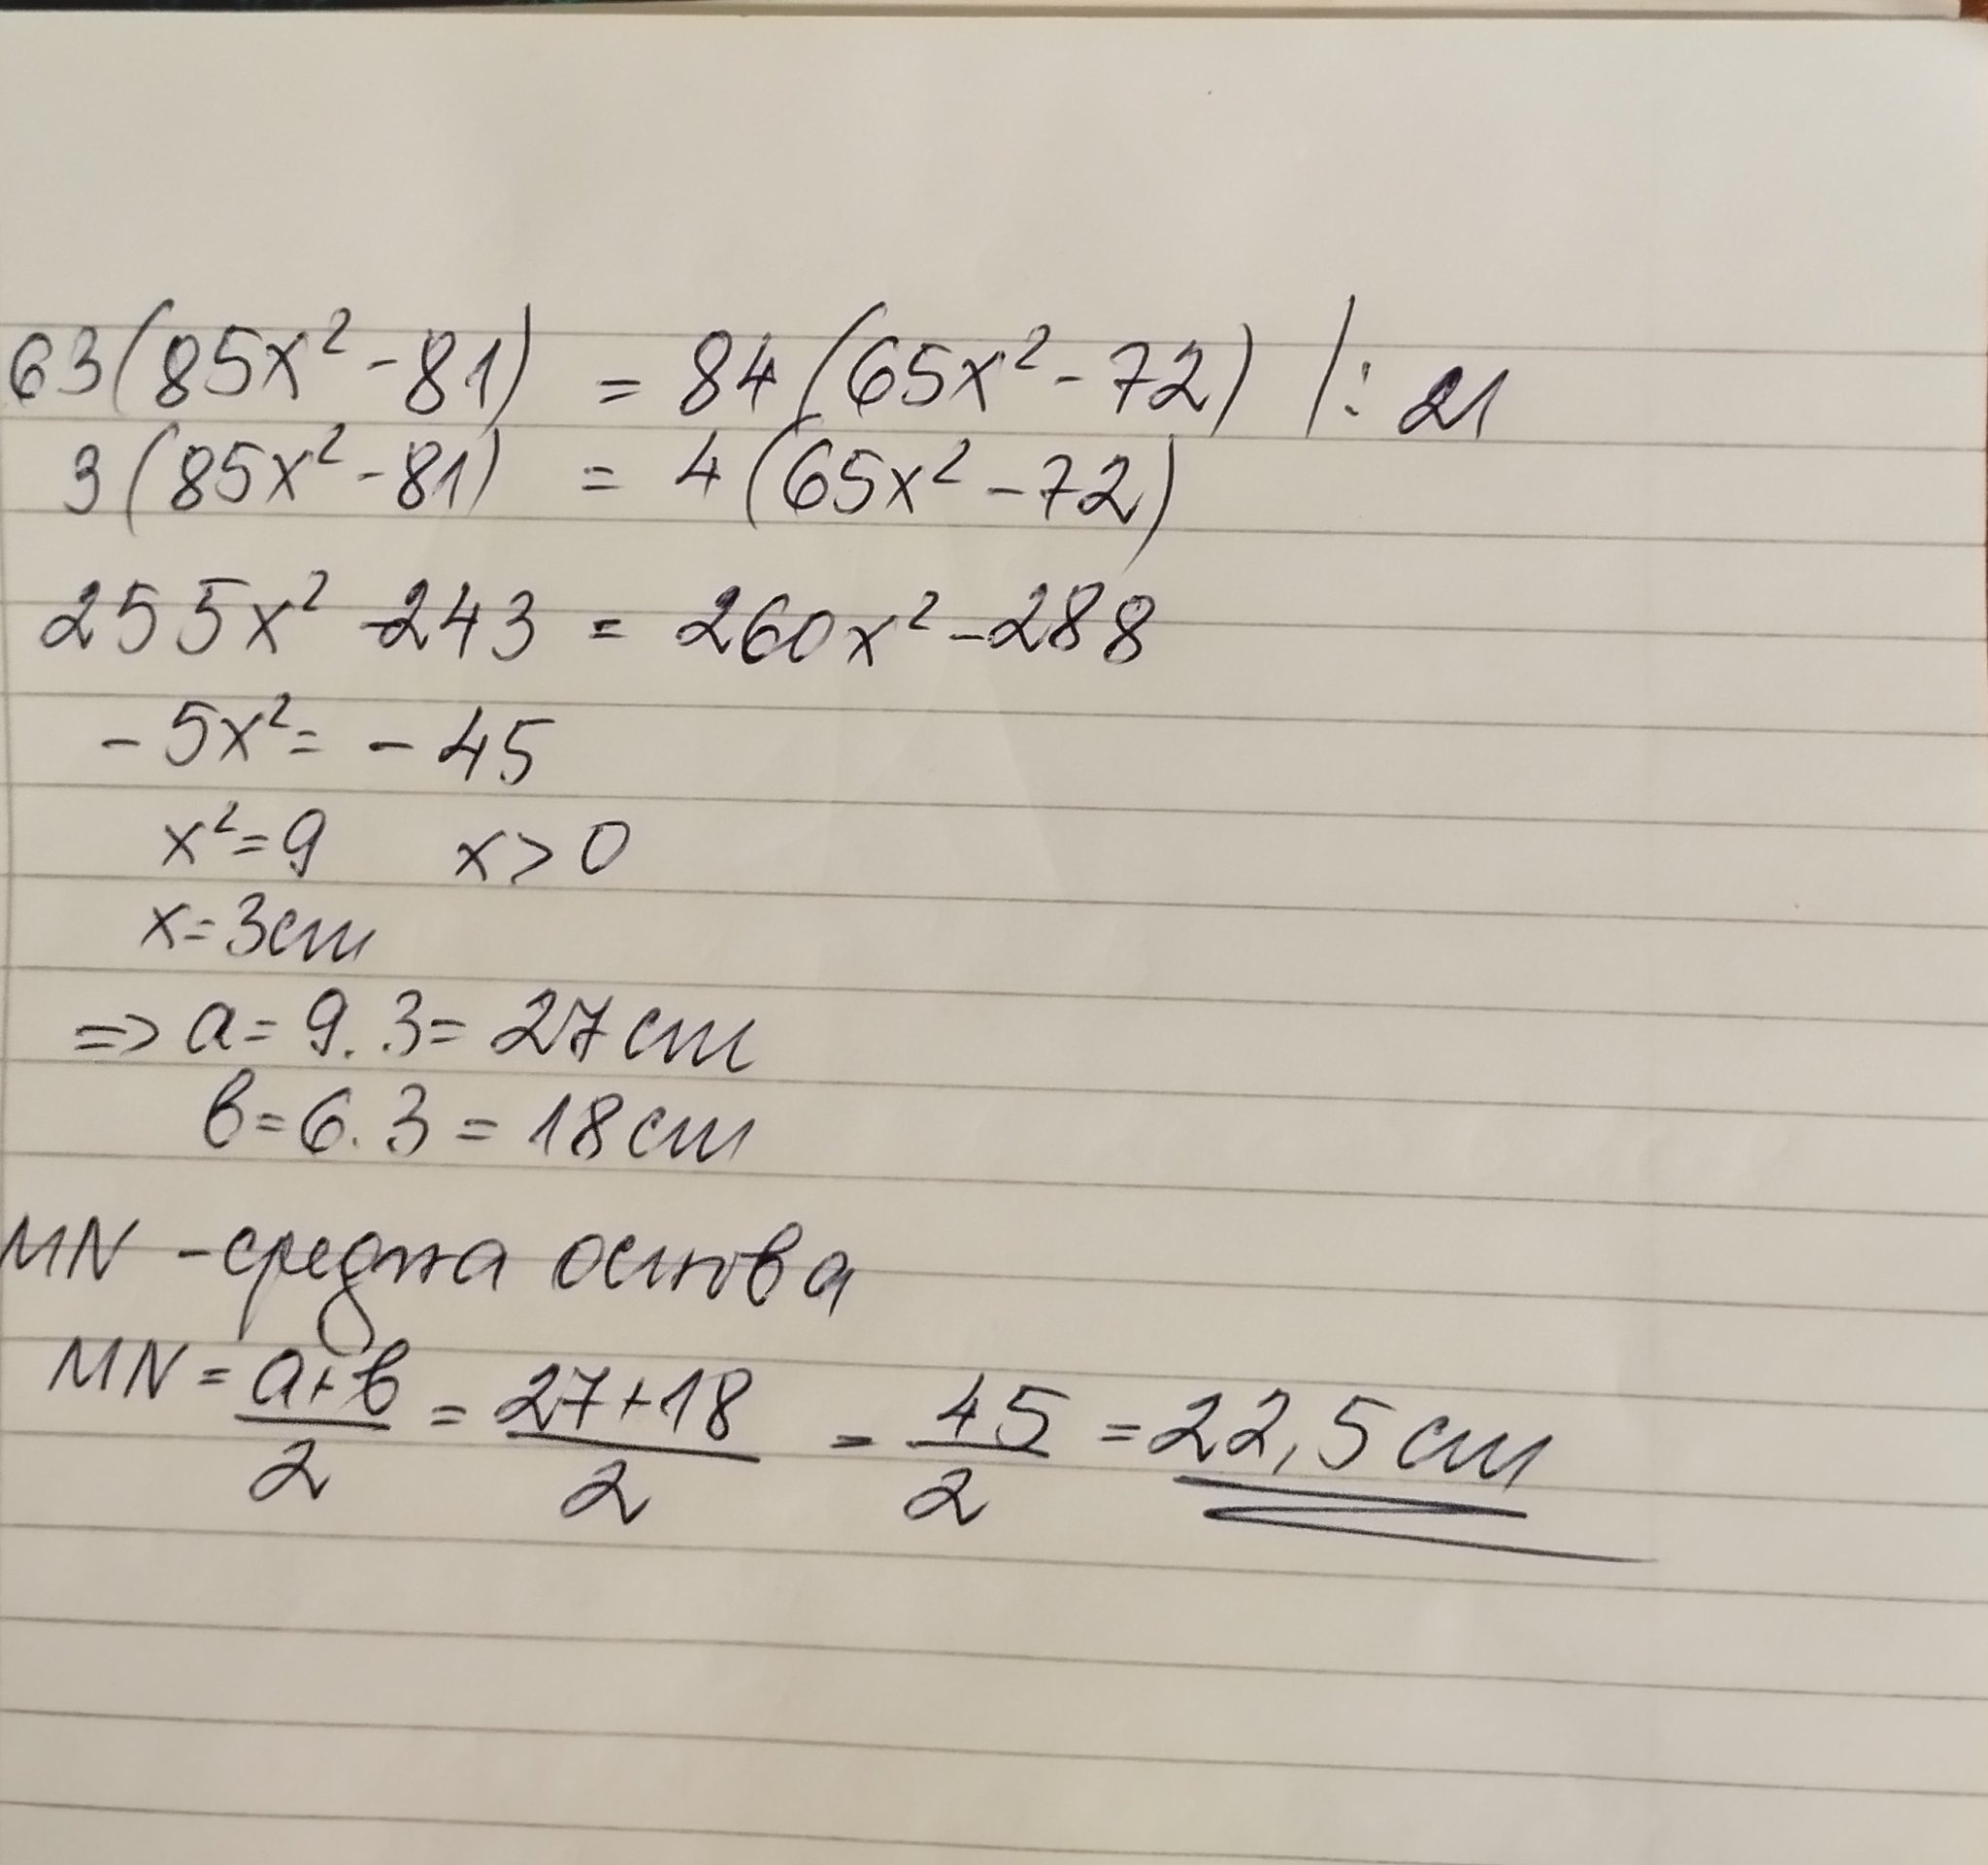 63(85x² - 81) = 84(65x² - 72) /: 21
3(85x² - 81) = 4(65x² - 72)
255x² - 243 = 260x² - 288
- 5x² = - 45
x² = 9 x > 0
x = 3cm
=> a = 9.3 = 27cm
b = 6.3 = 18cm
MN - средна основа
MN = a+b/2 = 27+18/2 = 45/2 = 22,5cm